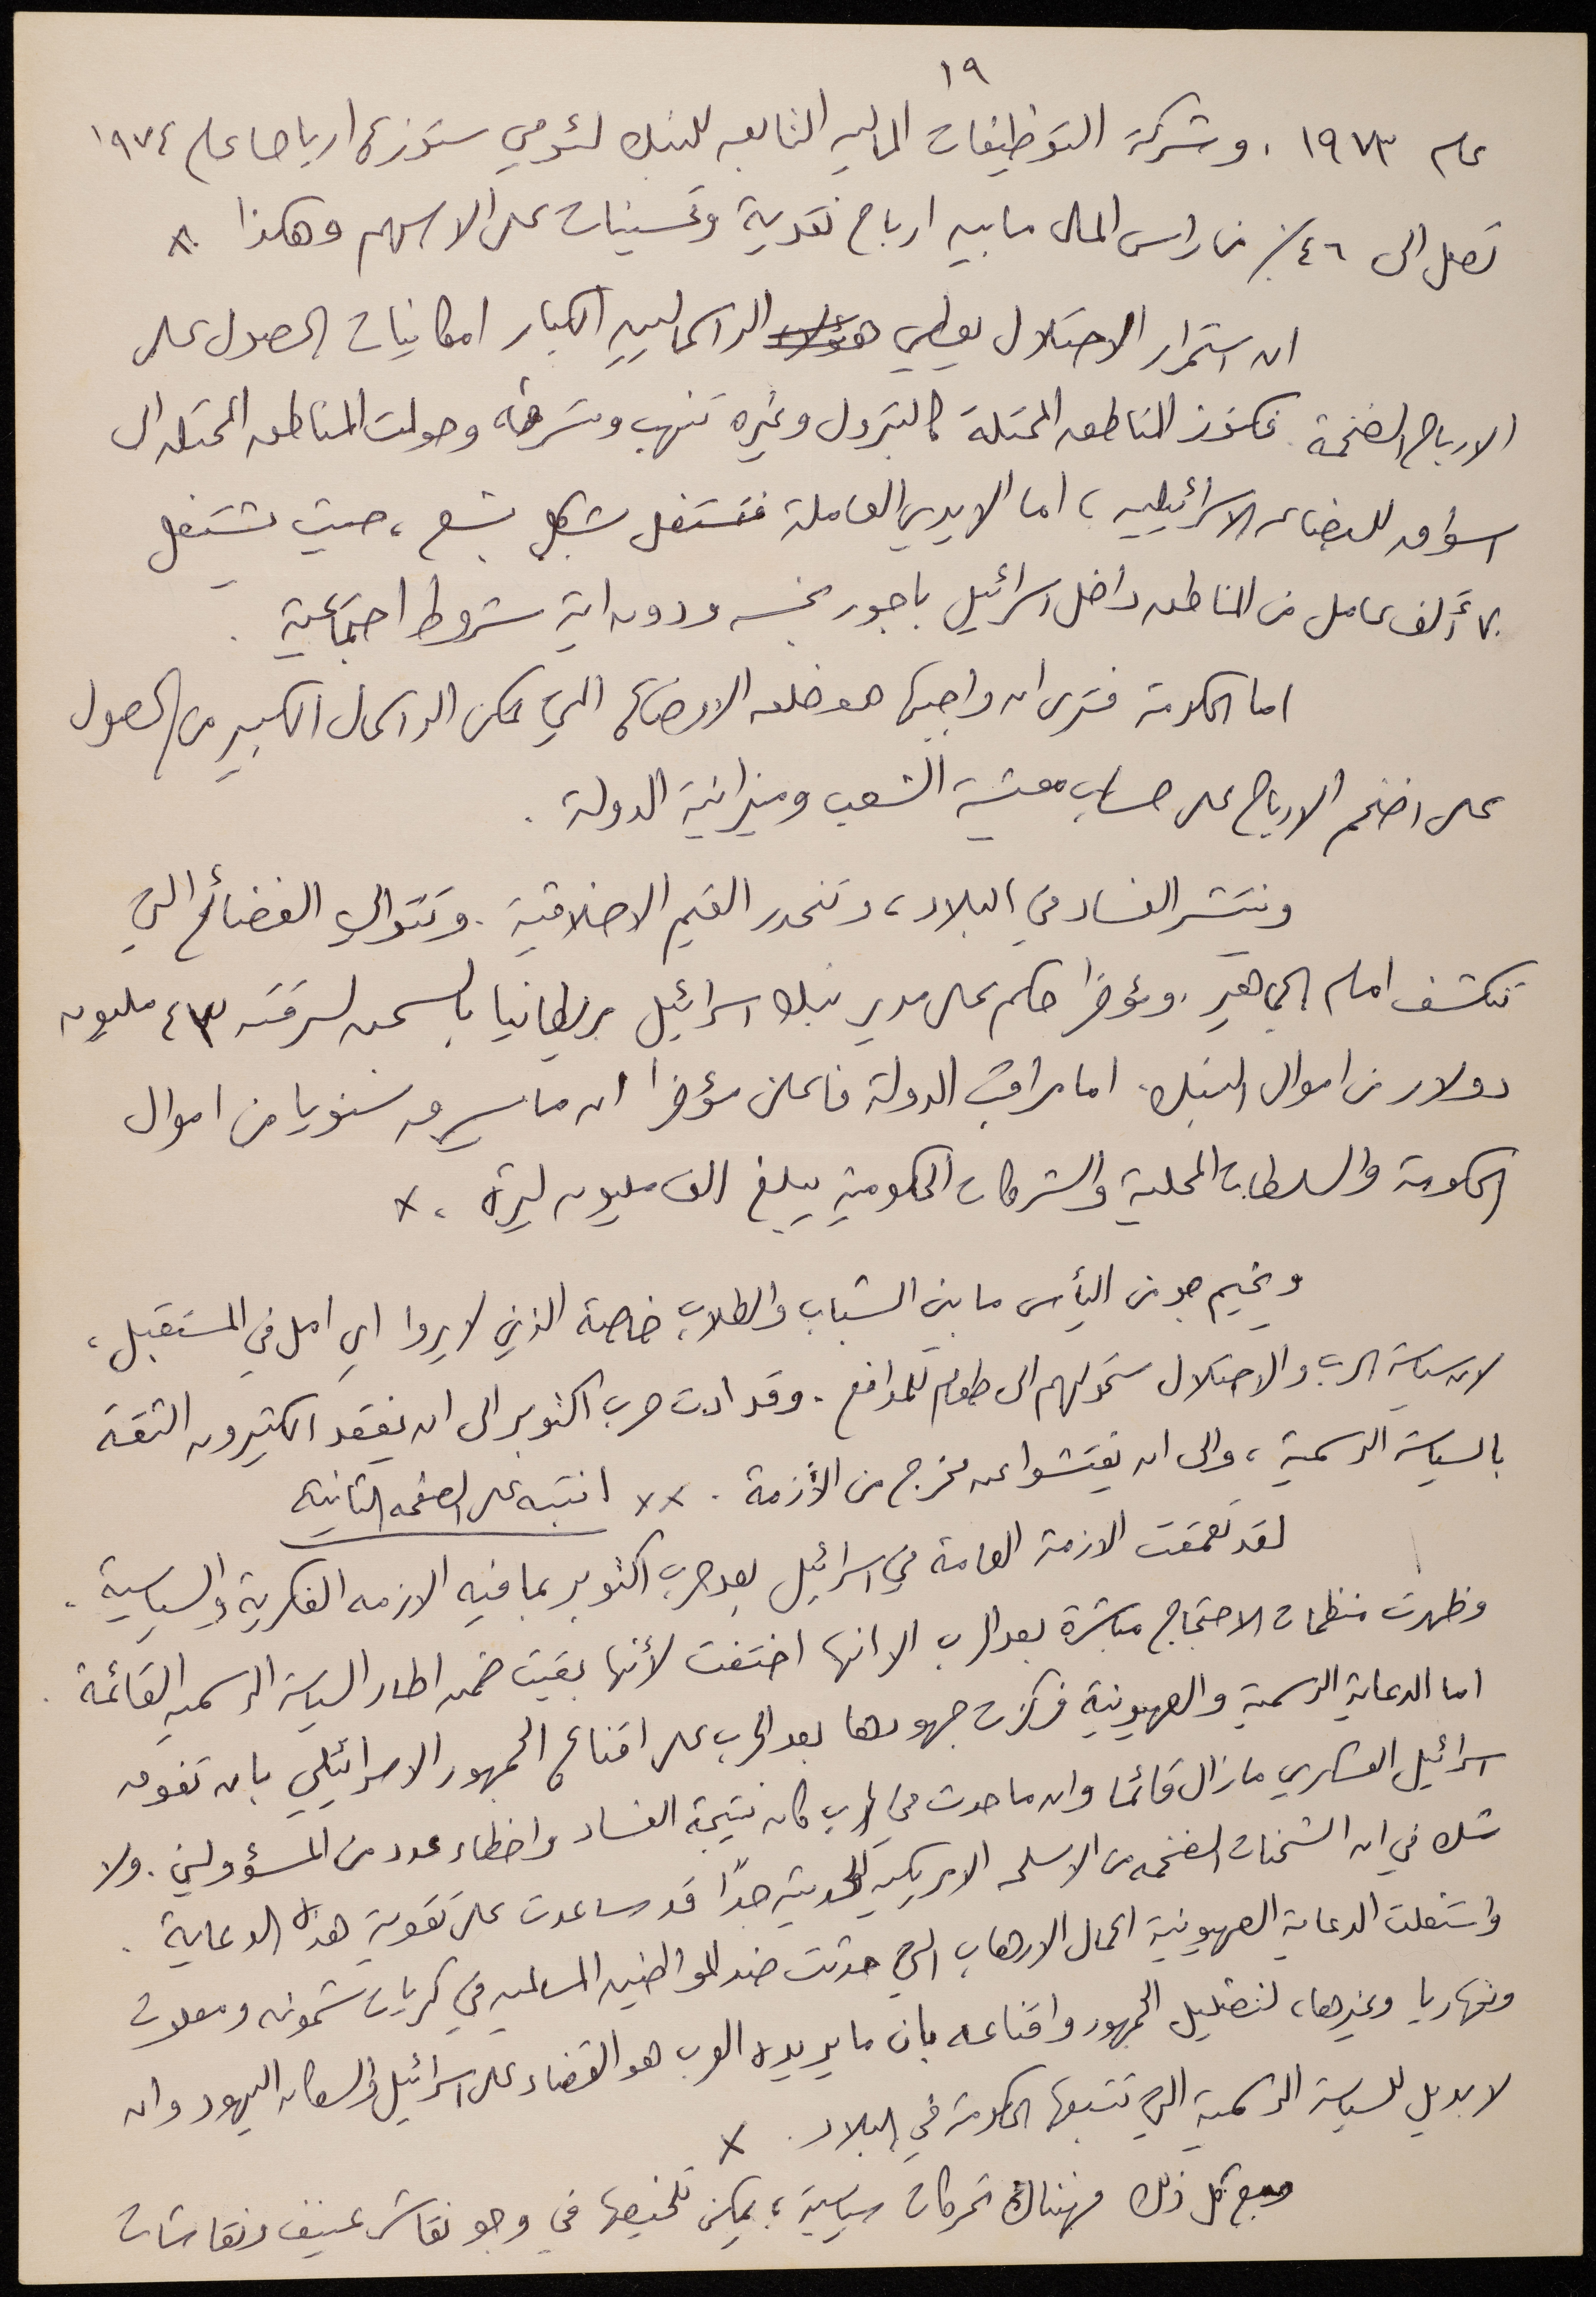 ١٩
عام ١٩٧٣ . وشركة التوظيفات المالية التابعه للبنك لئومي ستوزع ارباحا عام ١٩٧٤
تصل الى ٤٦٪ من راس المال ما بين ارباح نقدية وتحسينات على الاسهم وهكذا
ان استمرار الاحتلال يعطي هؤلاء الراسماليين الكبار امكانيات الحصول على
الارباح الضخمة . فكنوز المناطق المحتلة كالبترول وغيره تنهب وتسرق وحولت المناطق المحتله الى
اسواق للبضاعه الاسرائيليه ، اما الايدي العاملة فتستغل بشكل بشع ، حيث يشتغل
٧٠ ألف عامل من المناطق داخل اسرائيل باجور بخسه ودون اية شروط اجتماعية .
اما الحكومة فترى ان واجبها هو خلق الاوضاع التي تمكن الراسمال الكبير من الحصول
على اضخم الارباح على حساب معيشة الشعب وميزانية الدولة .
وينتشر الفساد في البلاد ، وتنحدر القيم الاخلاقية . وتتوالى الفضائح التي
تنكشف امام الجماهير . ومؤخرا حكم على مدير بنك اسرائيل بريطانيا بالسجن لسرقته ٤٣ مليون
دولار من اموال البنك . اما مراقب الدولة فاعلن مؤخرا ان ما يسرق سنويا من اموال
الحكومة والسلطات المحلية والشركات الحكومية يبلغ الف مليون ليرة . x
ويخيم جو من اليأس ما بين الشباب والطلاب خاصة الذين لا يروا اي امل في المستقبل ،
لان سياسة الحرب والاحتلال ستحولهم الى طعام للمدافع . وقد ادت حرب اكتوبر الى ان يفقد الكثيرون الثقة
بالسياسة الرسمية ، والى ان يفتشوا عن مخرج من الأزمة . xx انتبه على الصفحه الثانية
لقد تعمقت الازمة العامة في اسرائيل بعد حرب اكتوبر بما فيه الازمه الفكرية والسياسية .
وظهرت منظمات الاحتجاج مباشرة بعد الحرب الا انها اختفت لأنها بقيت ضمن اطار السياسة الرسميه القائمة .
اما الدعاية الرسمية والصهيونية فركزت جهودها بعد الحرب على اقناع الجمهور الاسرائيلي بان تفوق
اسرائيل العسكري ما زال قائما وان ما حدث في الحرب كان نتيجة الفساد واخطاء عدد من المسؤولين . ولا
شك في ان الشحنات الضخمه من الاسلحه الامريكيه الحديثة جدًا قد ساعدت على تقوية هذه الدعاية .
واستغلت الدعاية الصهيونية اعمال الارهاب التي حدثت ضد المواطنين المسالمين في كريات شمونه ومعلوت
ونهاريا وغيرها ، لتضليل الجمهور واقناعه بان ما يريده العرب هو القضاء على اسرائيل والسكان اليهود وان
لا بديل للسياسة الرسمية التي تتبعها الحكومة في البلاد . x
ومع كل ذلك فهناك تحركات سياسية ، يمكن تلخيصها في وجو نقاش عنيف ونقاشات